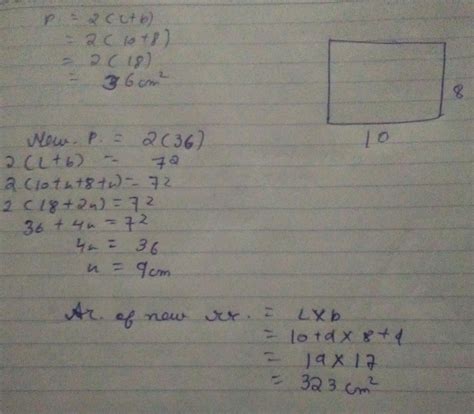 P. = 2(l+b)
= 2(10+8)
= 2(18)
= 36cm²
8
10
New. P. = 2(36)
2(l+b) = 72
2(10+x+8+x) = 72
2(18+2x) = 72
36 + 4x = 72
4x = 36
x = 9cm
Ar. of new rx. = L×b
= 10+9×8+9
= 19×17
= 323 cm²